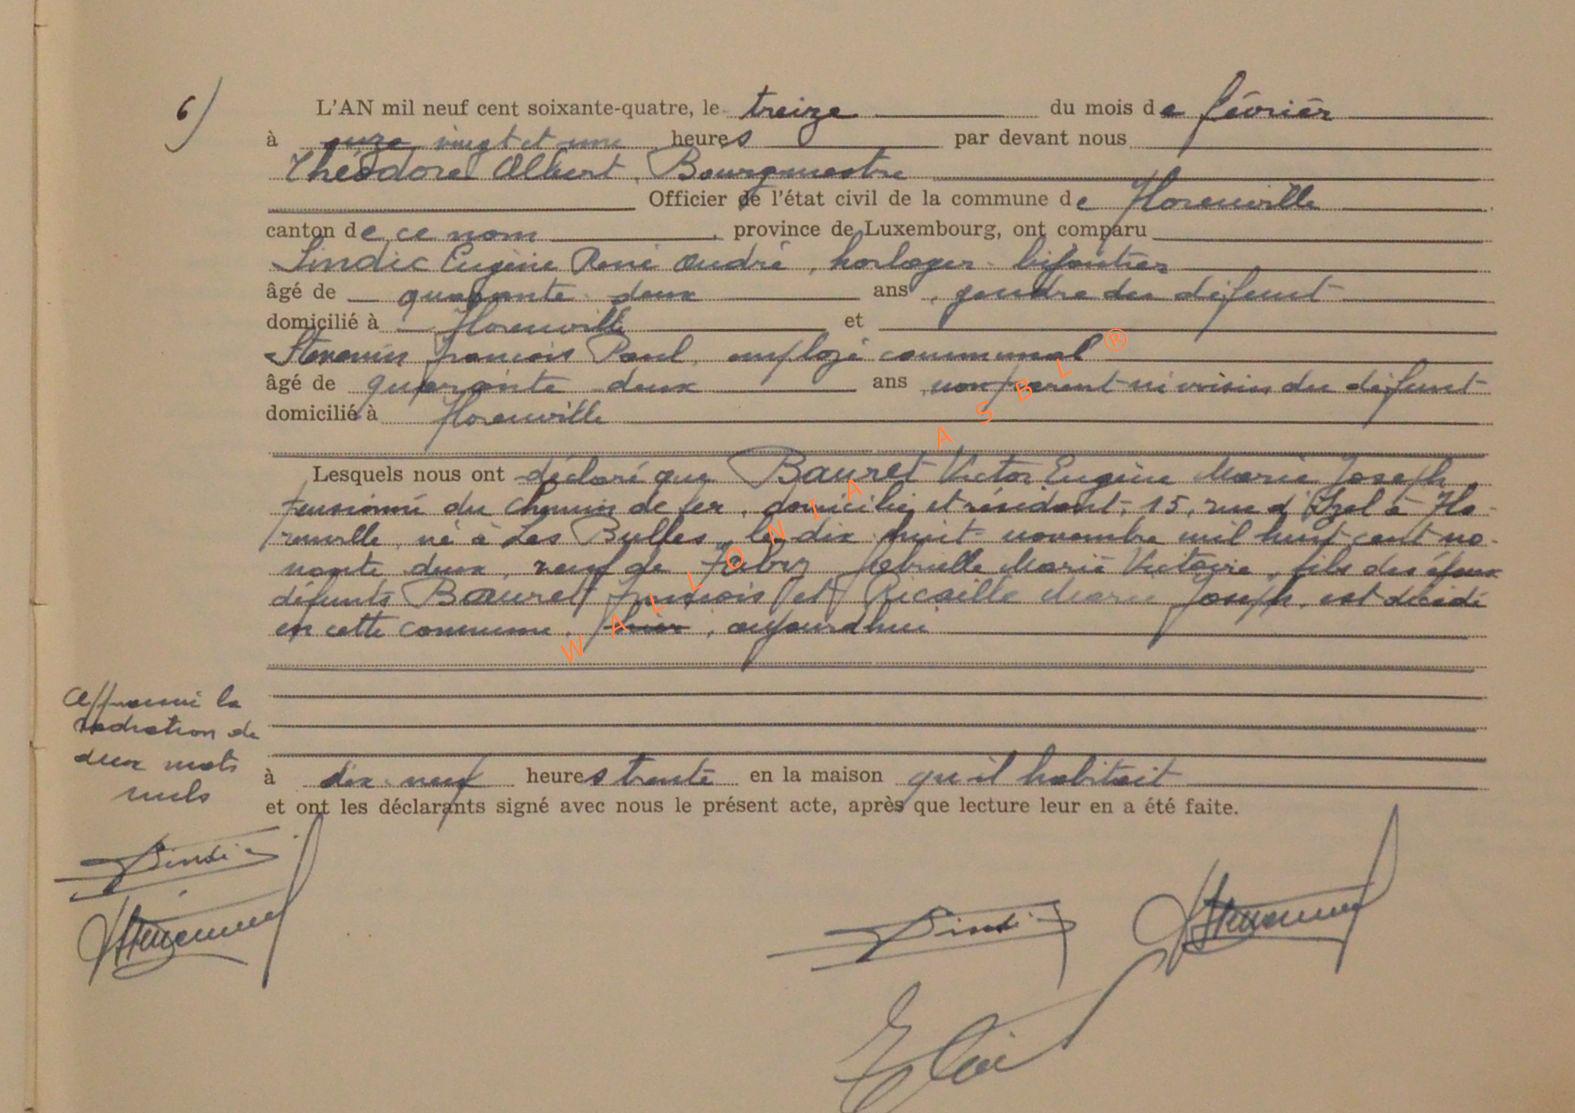 6)
L'AN mil neuf cent soixante-quatre, le treize du mois de février
à onze vingt et une heures par devant nous
Théodore Albert, Bourgmestre
Officier de l'état civil de la commune de Florenville
canton de ce nom, province de Luxembourg, ont comparu
Sindic Eugène René André, horloger-bijoutier
âgé de quarante-deux ans, gendre du défunt
domicilié à Florenville et
Stevenin François Paul, employé communal
âgé de quarante deux ans non parent ni voisin du défunt
domicilié à Florenville
Lesquels nous ont déclaré que Bauret Victor Eugène Marie Joseph
pensionné du chemin de fer, domicilié et résidant, 15, rue d'Izel à Flo-
renville, né à Les Bulles, le dix huit novembre mil huit cent no-
nante deux, veuf de Fabry Marie Victoire, fils des époux
défunts Bauret François et Ricaille Marie Joseph, est décédé
en cette commune, hier, aujourd'hui
à dix-neuf heures trente en la maison qu'il habitait
et ont les déclarants signé avec nous le présent acte, après que lecture leur en a été faite.
Approuvé la
radiation de
deux mots
nuls
Sindic
Stevenin
Sindic
Stevenin
WALLONIA ASBL ®